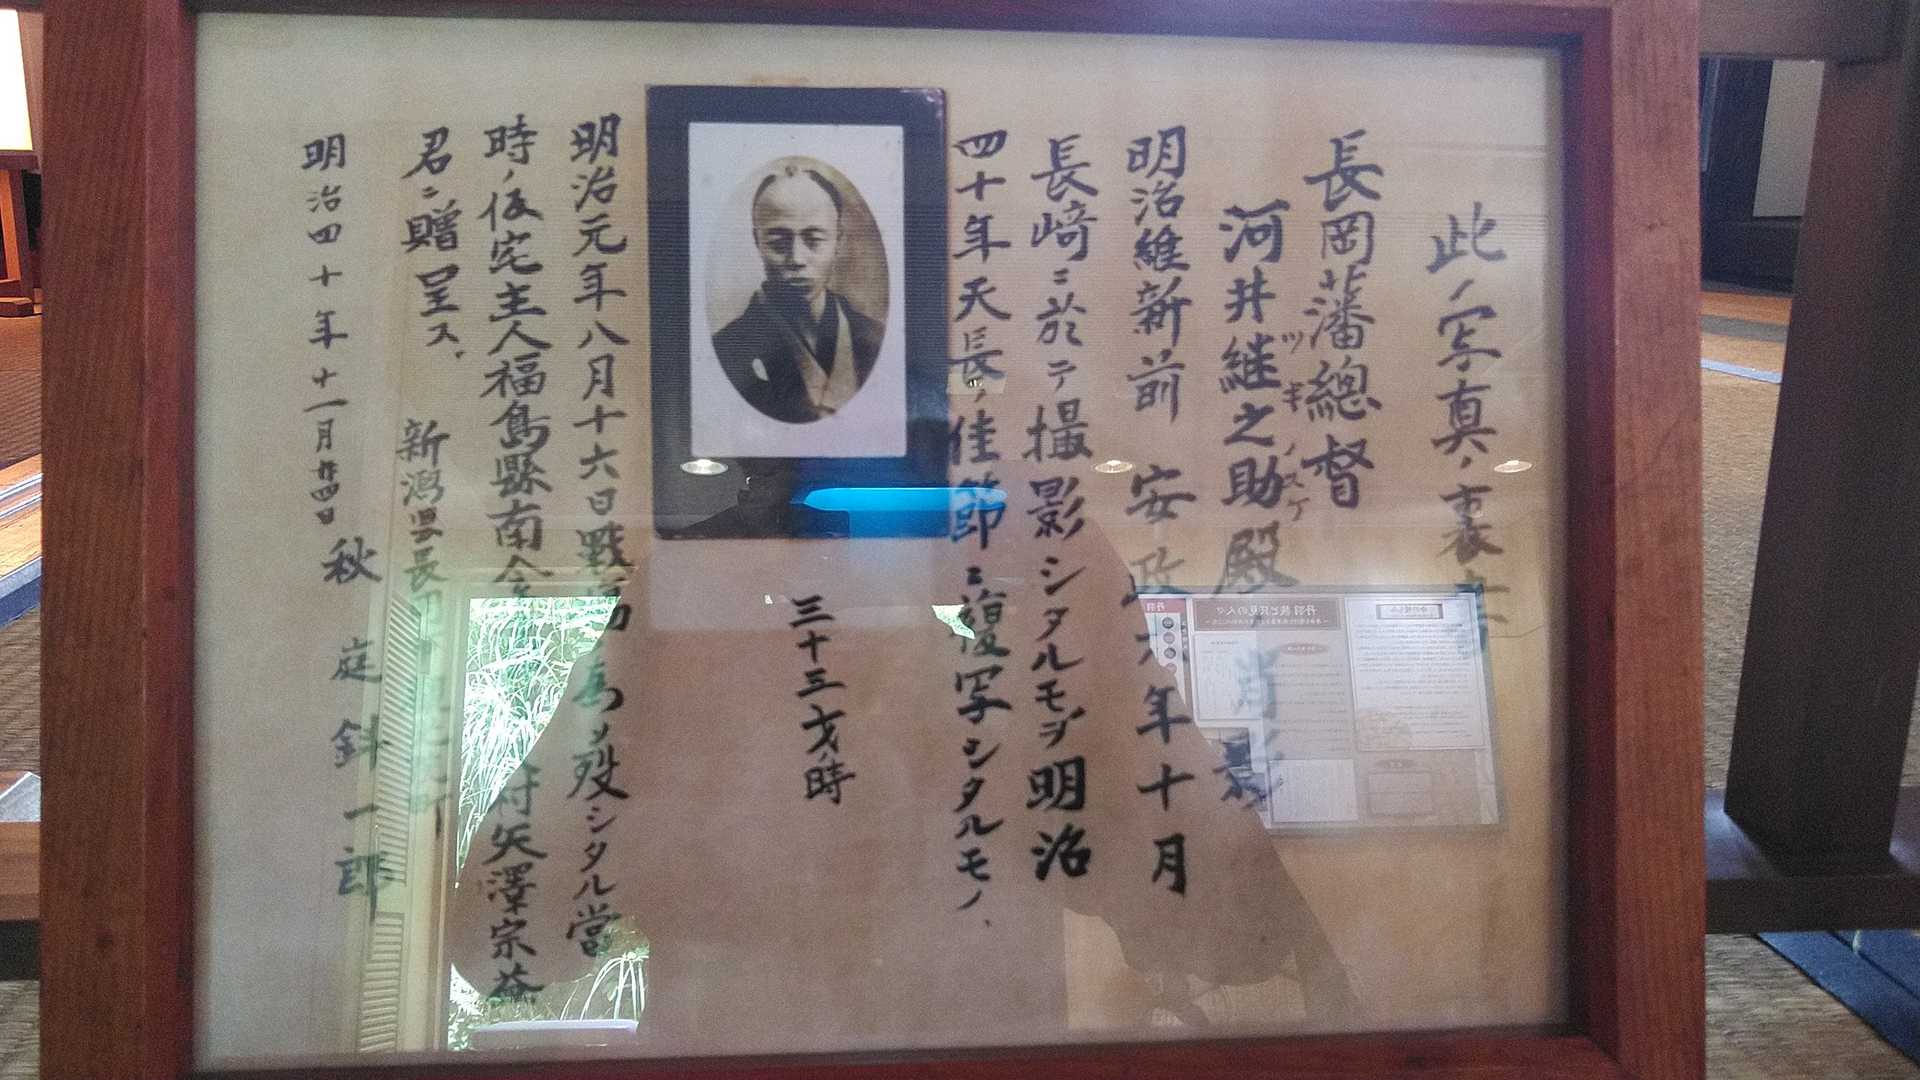 此ノ写真ノ裏書
長岡藩總督
河井継之助殿 肖影
ツギノスケ
明治維新前 安政六年十月
長崎ニ於テ撮影シタルモヲ明治
四十年天長ノ佳節ニ複写シタルモノ、
三十三才ノ時
明治元年八月十六日戰
為メ歿シタル當
時ノ仮宅主人福島縣南会
村矢澤宗益
君ニ贈呈ス、
新潟県長岡
町
明治四十年十一月廿四日
秋庭斜一郎